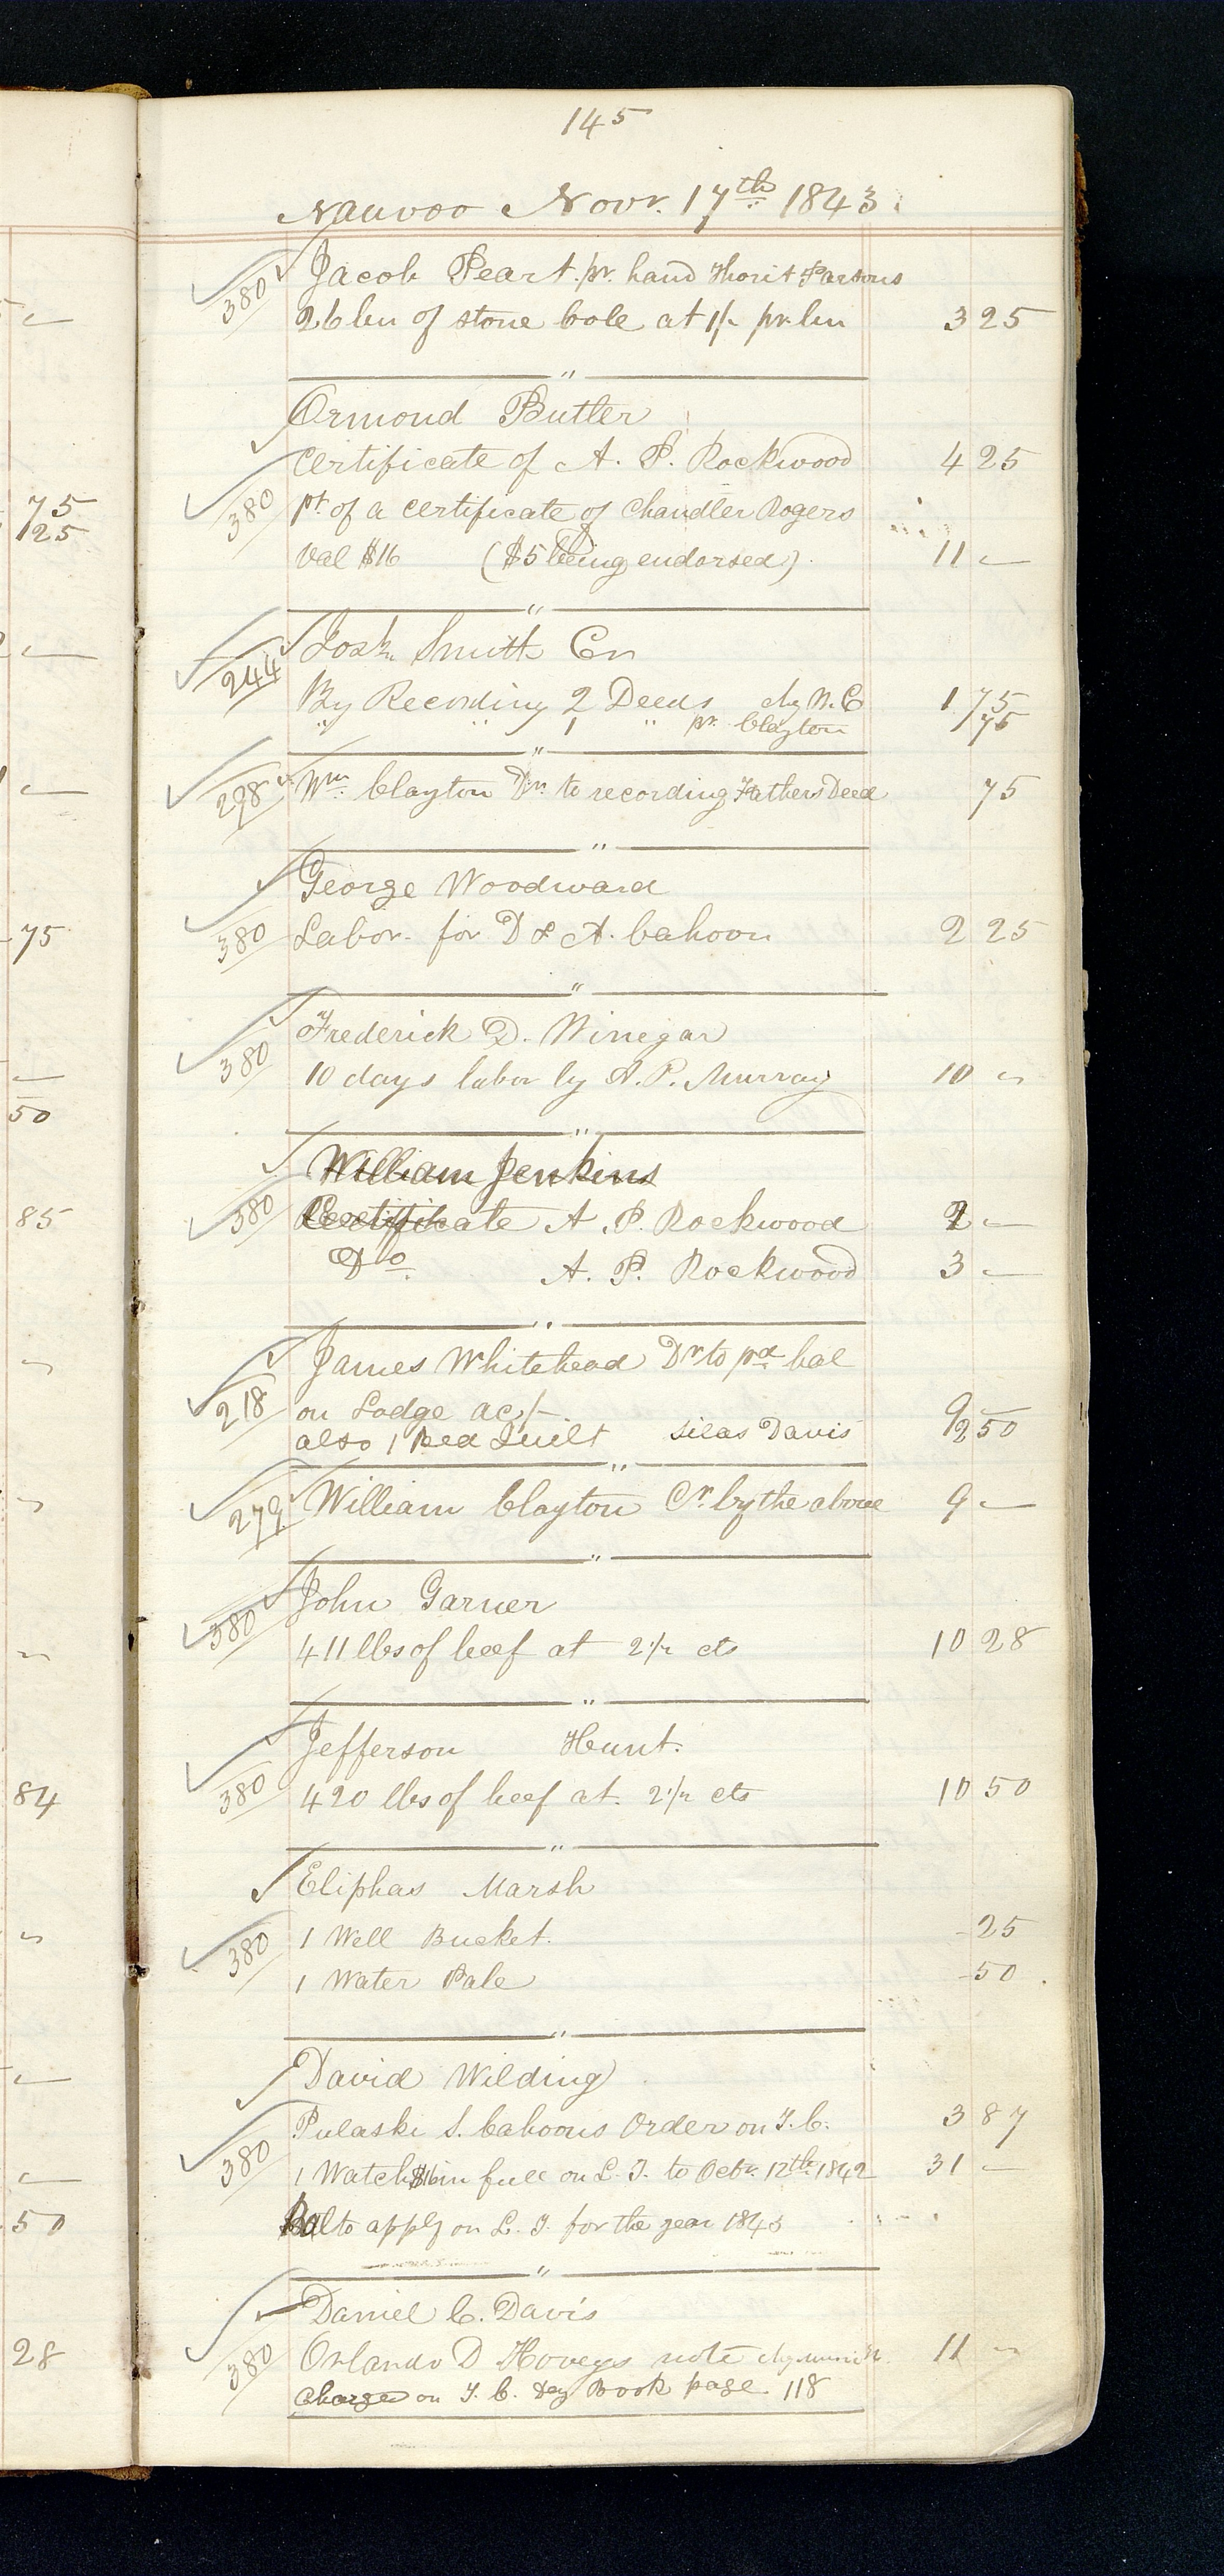 145
Nauvoo Novr. 17th 1843.
380 Jacob Peart. pr. hand Thorit Parsons
26 bu of stone cole at 1/- pr bu 3 25
"
Ormond Butler
Certificate of A. P. Rockwood 4 25
380 pt. of a certificate of Chandler Rogers
Val $16 ($5 being endorsed). 11 —
"
244 Josh. Smith Cr
By Recording 2 Deeds chg N. C 1 75
" " 1 " pr. Clayton 75
"
298 Wm. Clayton Dr. to recording Fathers Deed 75
"
George Woodward
380 Labor. for D & A. Cahoon 2 25
"
Frederick D. Winegar
380 10 days labor by A. P. Murray 10 —
"
William Jenkins
380 Certificate A. P. Rockwood 2 —
Do. A. P. Rockwood 3 —
"
James Whitehead Dr to pd bal
218 on Lodge ac/- 9 —
also 1 Bed Quilt Silas Davis 2 50
"
279 William Clayton Cr. by the above 9 —
"
John Garner
380 411 lbs of beef at 2 1/2 cts 10 28
"
Jefferson Hunt.
380 420 lbs of beef at. 2 1/2 cts 10 50
"
Eliphas Marsh
380 1 Well Bucket. - 25
1 Water Pale - 50
"
David Wilding
Pulaski S. Cahoons Order on T. C. 3 87
380 1 Watch $16 in full on L. T. to Octr. 12th 1842 31 —
Bal to apply on L. T. for the year 1843
"
Daniel C. Davis
380 Orlando D Hoveys note 11 —
Charged on T. C. Day Book page 118
—
75
125
—
—
75
—
50
85
84
—
—
50
28